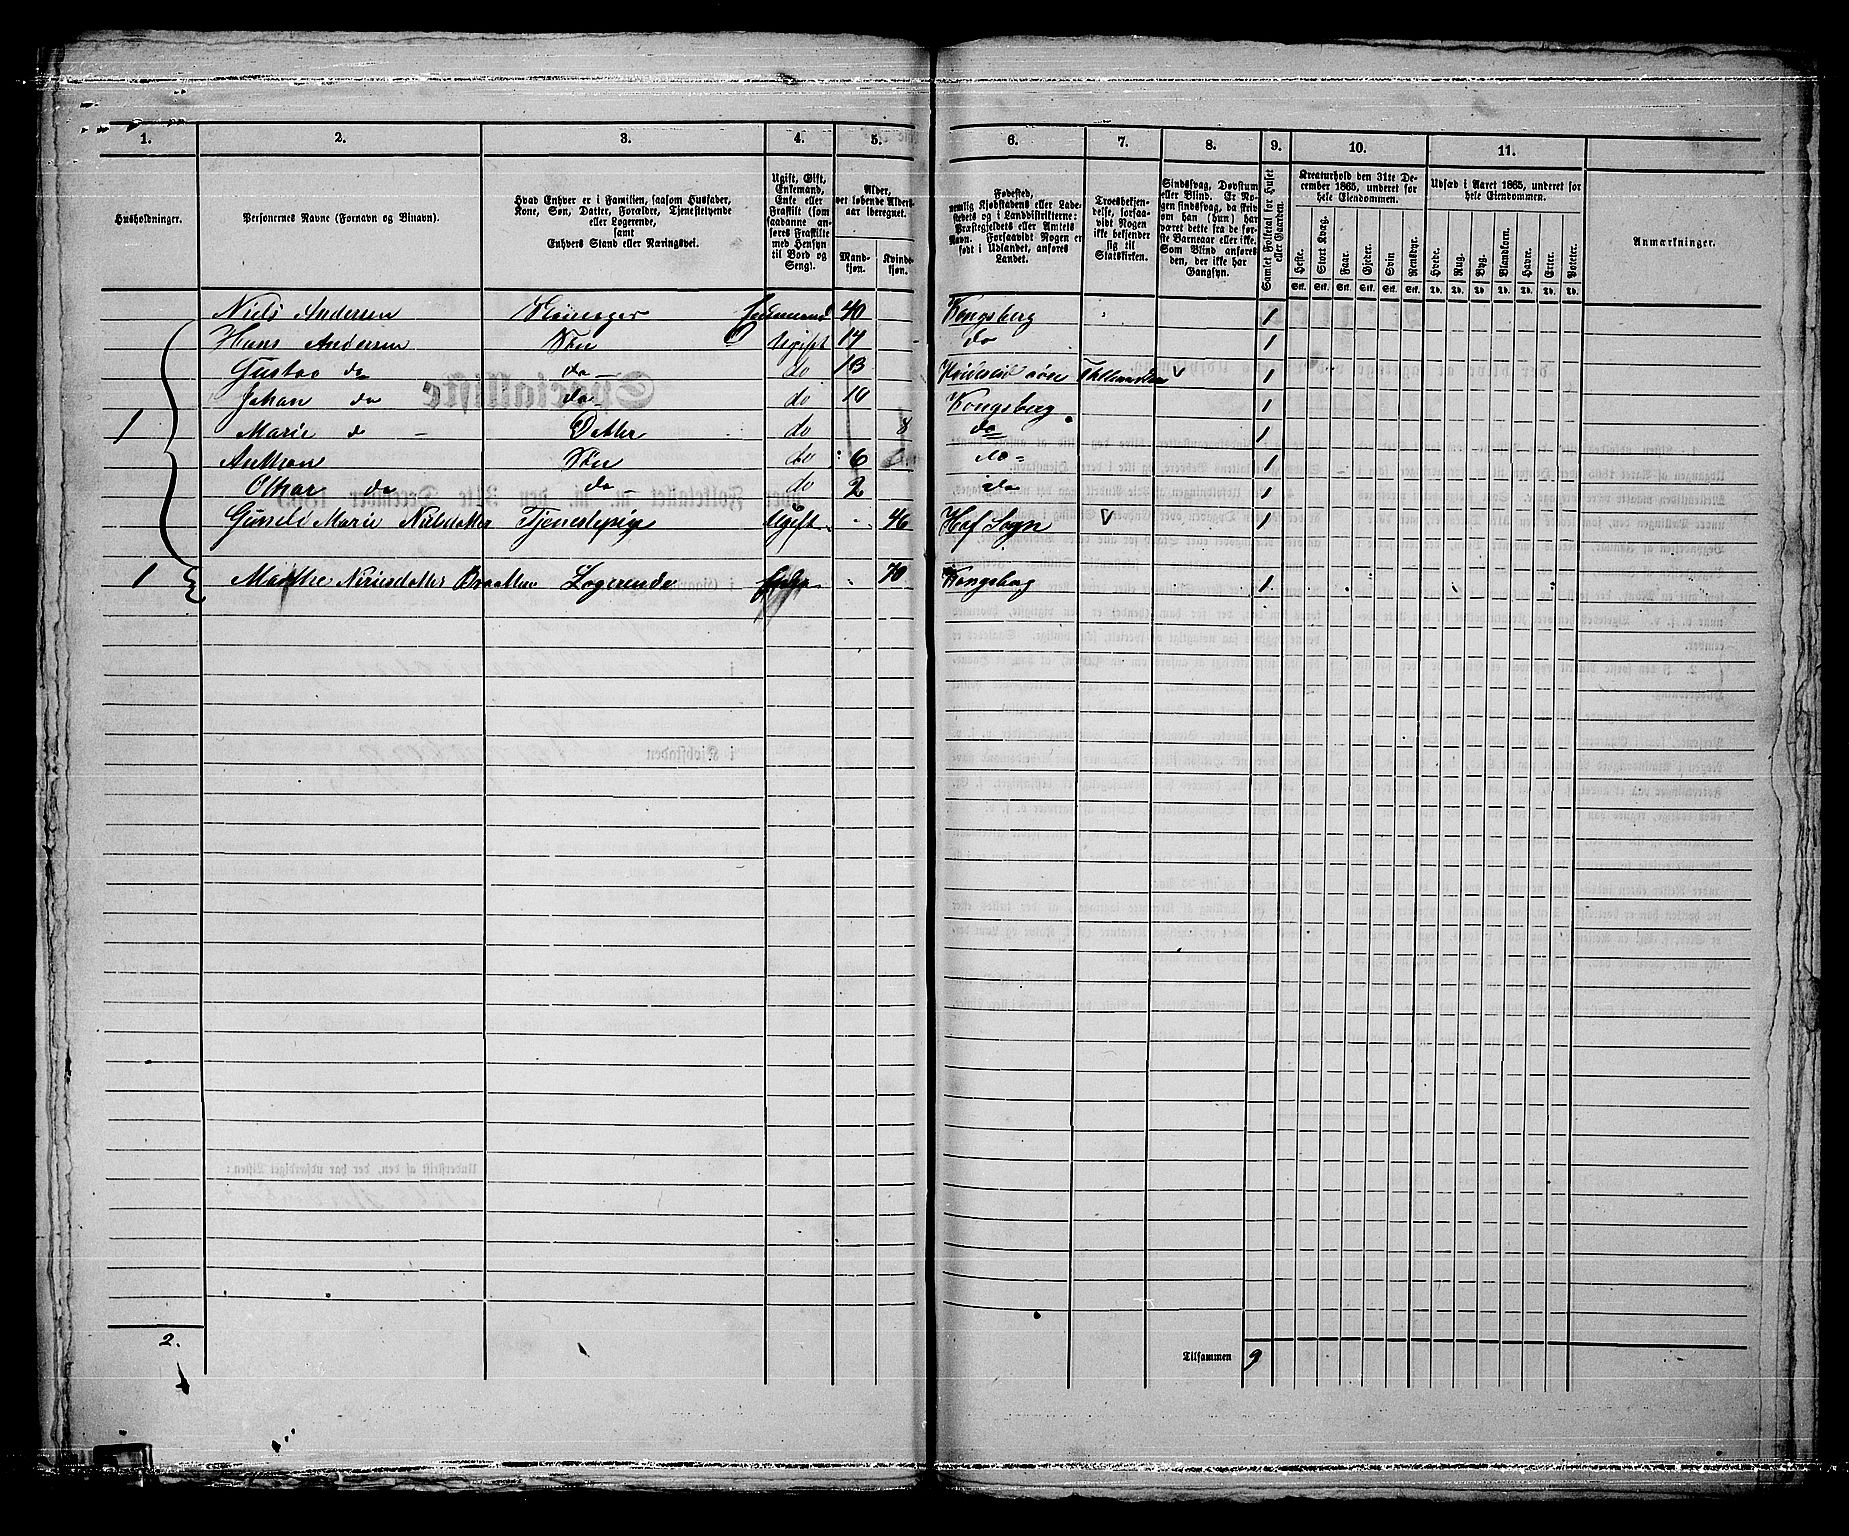 1. 2. 3. 4. 5. 6. 7. 8. 9. 10. 11.
Husholdninger.
Personernes Navne (Fornavn og Binavn).
Hvad Enhver er i Familien, saasom Husfader,
Kone, Søn, Datter, Forældre, Tjenestetyende
eller Logerende,
samt
Enhvers Stand eller Næringsvei.
Ugift, Gift,
Enkemand,
Enke eller
Fraskilt (som
saadanne an-
føres Fraskilte
med Hensyn
til Bord og
Seng).
Alder,
det løbende Alders-
aar iberegnet.
Mand-
kjøn.
Kvinde-
kjøn.
Fødested,
nemlig Kjøbstadens eller Lade-
stedets og i Landdistrikterne:
Præstegjeldets eller Amtets
Navn. Forsaavidt Nogen er
født i Udlandet, anføres
Landet.
Troesbekjen-
delse, forsaa-
vidt Nogen
ikke bekjender
sig til
Statskirken.
Sindssvag, Døvstum
eller Blind. Er No-
gen sindssvag, da skriv
om han (hun) har
været dette fra de før-
ste Barneaar eller ikke.
Som Blind anføres
den, der ikke har
Gangsyn.
Samlet Folketal for Huset
eller Gaarden.
Kreaturhold den 31te De-
cember 1865, underet for
hele Eiendommen.
Heste. Stort Kvæg. Faar. Gjeder. Svin Rensdyr.
Stk. Stk. Stk. Stk. Stk. Stk.
Udsæd i Aaret 1865, underet for
hele Eiendommen.
Hvede. Rug. Byg. Blandkorn. Havre. Erter. Poteter.
Td. Td. Td. Td. Td. Td. Td.
Anmærkninger.
Niels Andersen Enkemand 40 Kongsberg 1
Hans Andersen Søn Ugift 17 do 1
Gustav do do do 13 1
Johan do do do 10 Kongsberg 1
1 Marie do Datter do 8 do 1
Anthon Søn do 6 do 1
Othar do do do 2 do 1
Gunild Marie Nielsdatter Tjenestepige Ugift 46 Hof Sogn 1
1 Marthe Braathen Logerende Enke 70 Kongsberg 1
2.
Tilsammen 9